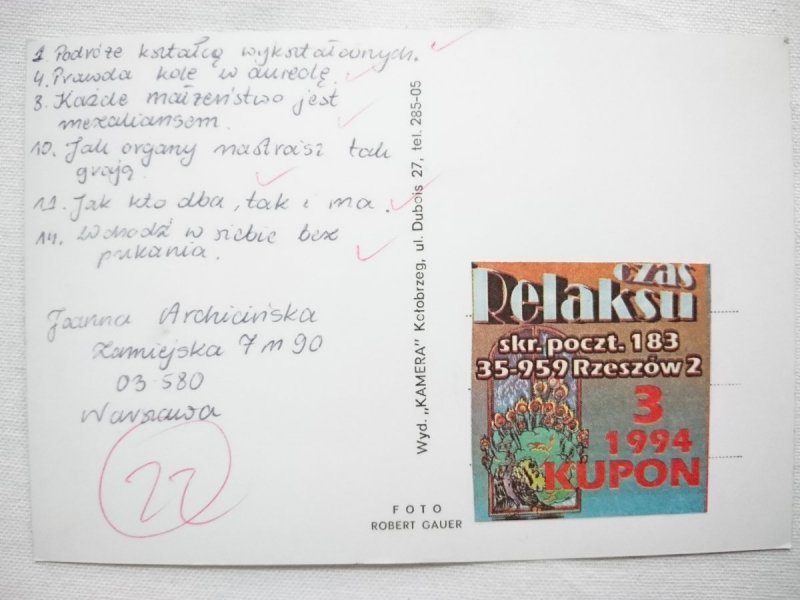 1. Podróże kstałcą wykstałconych.
4. Prawda kole w aureolę.
3. Każde małżeństwo jest
mezaliansem.
10. Jak organy nastroisz tak
grają.
11. Jak kto dba, tak i ma.
14. Wchodź w siebie bez
pukania.
Joanna Archicińska
Zamiejska 7 m 90
03-580
Warszawa
22
Wyd. „KAMERA" Kołobrzeg, ul. Dubois 27, tel. 285-05
FOTO
ROBERT GAUER
czas
Relaksu
skr. poczt. 183
35-959 Rzeszów 2
3
1994
KUPON